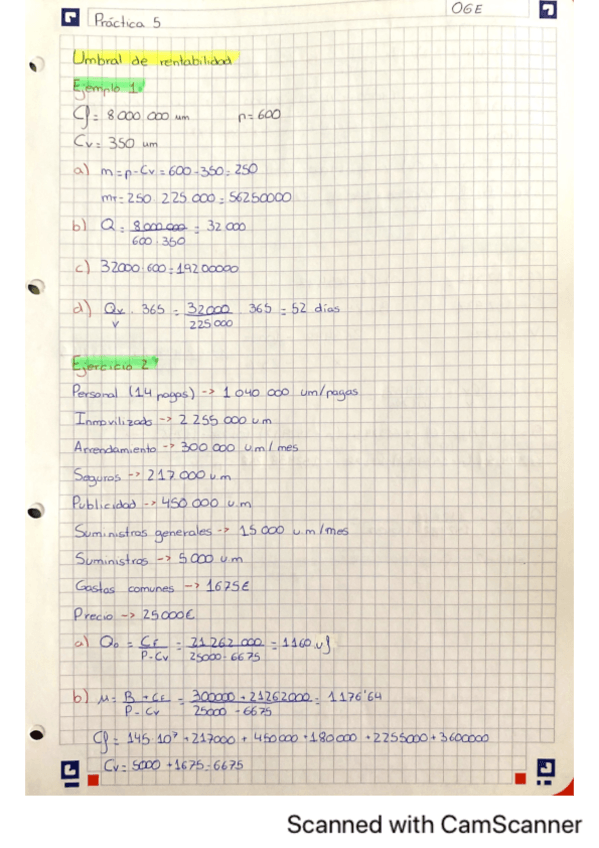 OGE
Práctica 5
Umbral de rentabilidad
Ejemplo 1
Cf = 8000 000 um p=600
Cv= 350 um
a) m=p-Cv=600-350=250
mT=250 225 000=56250000
b) Q = 8000 000 / 600-350 = 32 000
c) 32000·600=19200000
d) Qv / V · 365 = 32000 / 225000 · 365 = 52 días
Ejercicio 2
Personal (14 pagas) -> 1 040 000 um/pagas
Inmovilizado -> 2 255 000 um
Arrendamiento -> 300 000 um/mes
Seguros -> 217 000 u.m
Publicidad -> 450 000 u.m
Suministros generales -> 15 000 u.m/mes
Suministros -> 5 000 um
Gastos comunes -> 1675€
Precio -> 25000€
a) Qo = CF / P-Cv = 21 262 000 / 25000-6675 = 1160 uf
b) M= B + CF / P - Cv = 300000 + 21262000 / 25000 - 6675 = 1176'64
Cf = 145·10⁷ +217000 + 450000 +180 000 +2255000+3600000
Cv= 5000 +1675=6675
Scanned with CamScanner